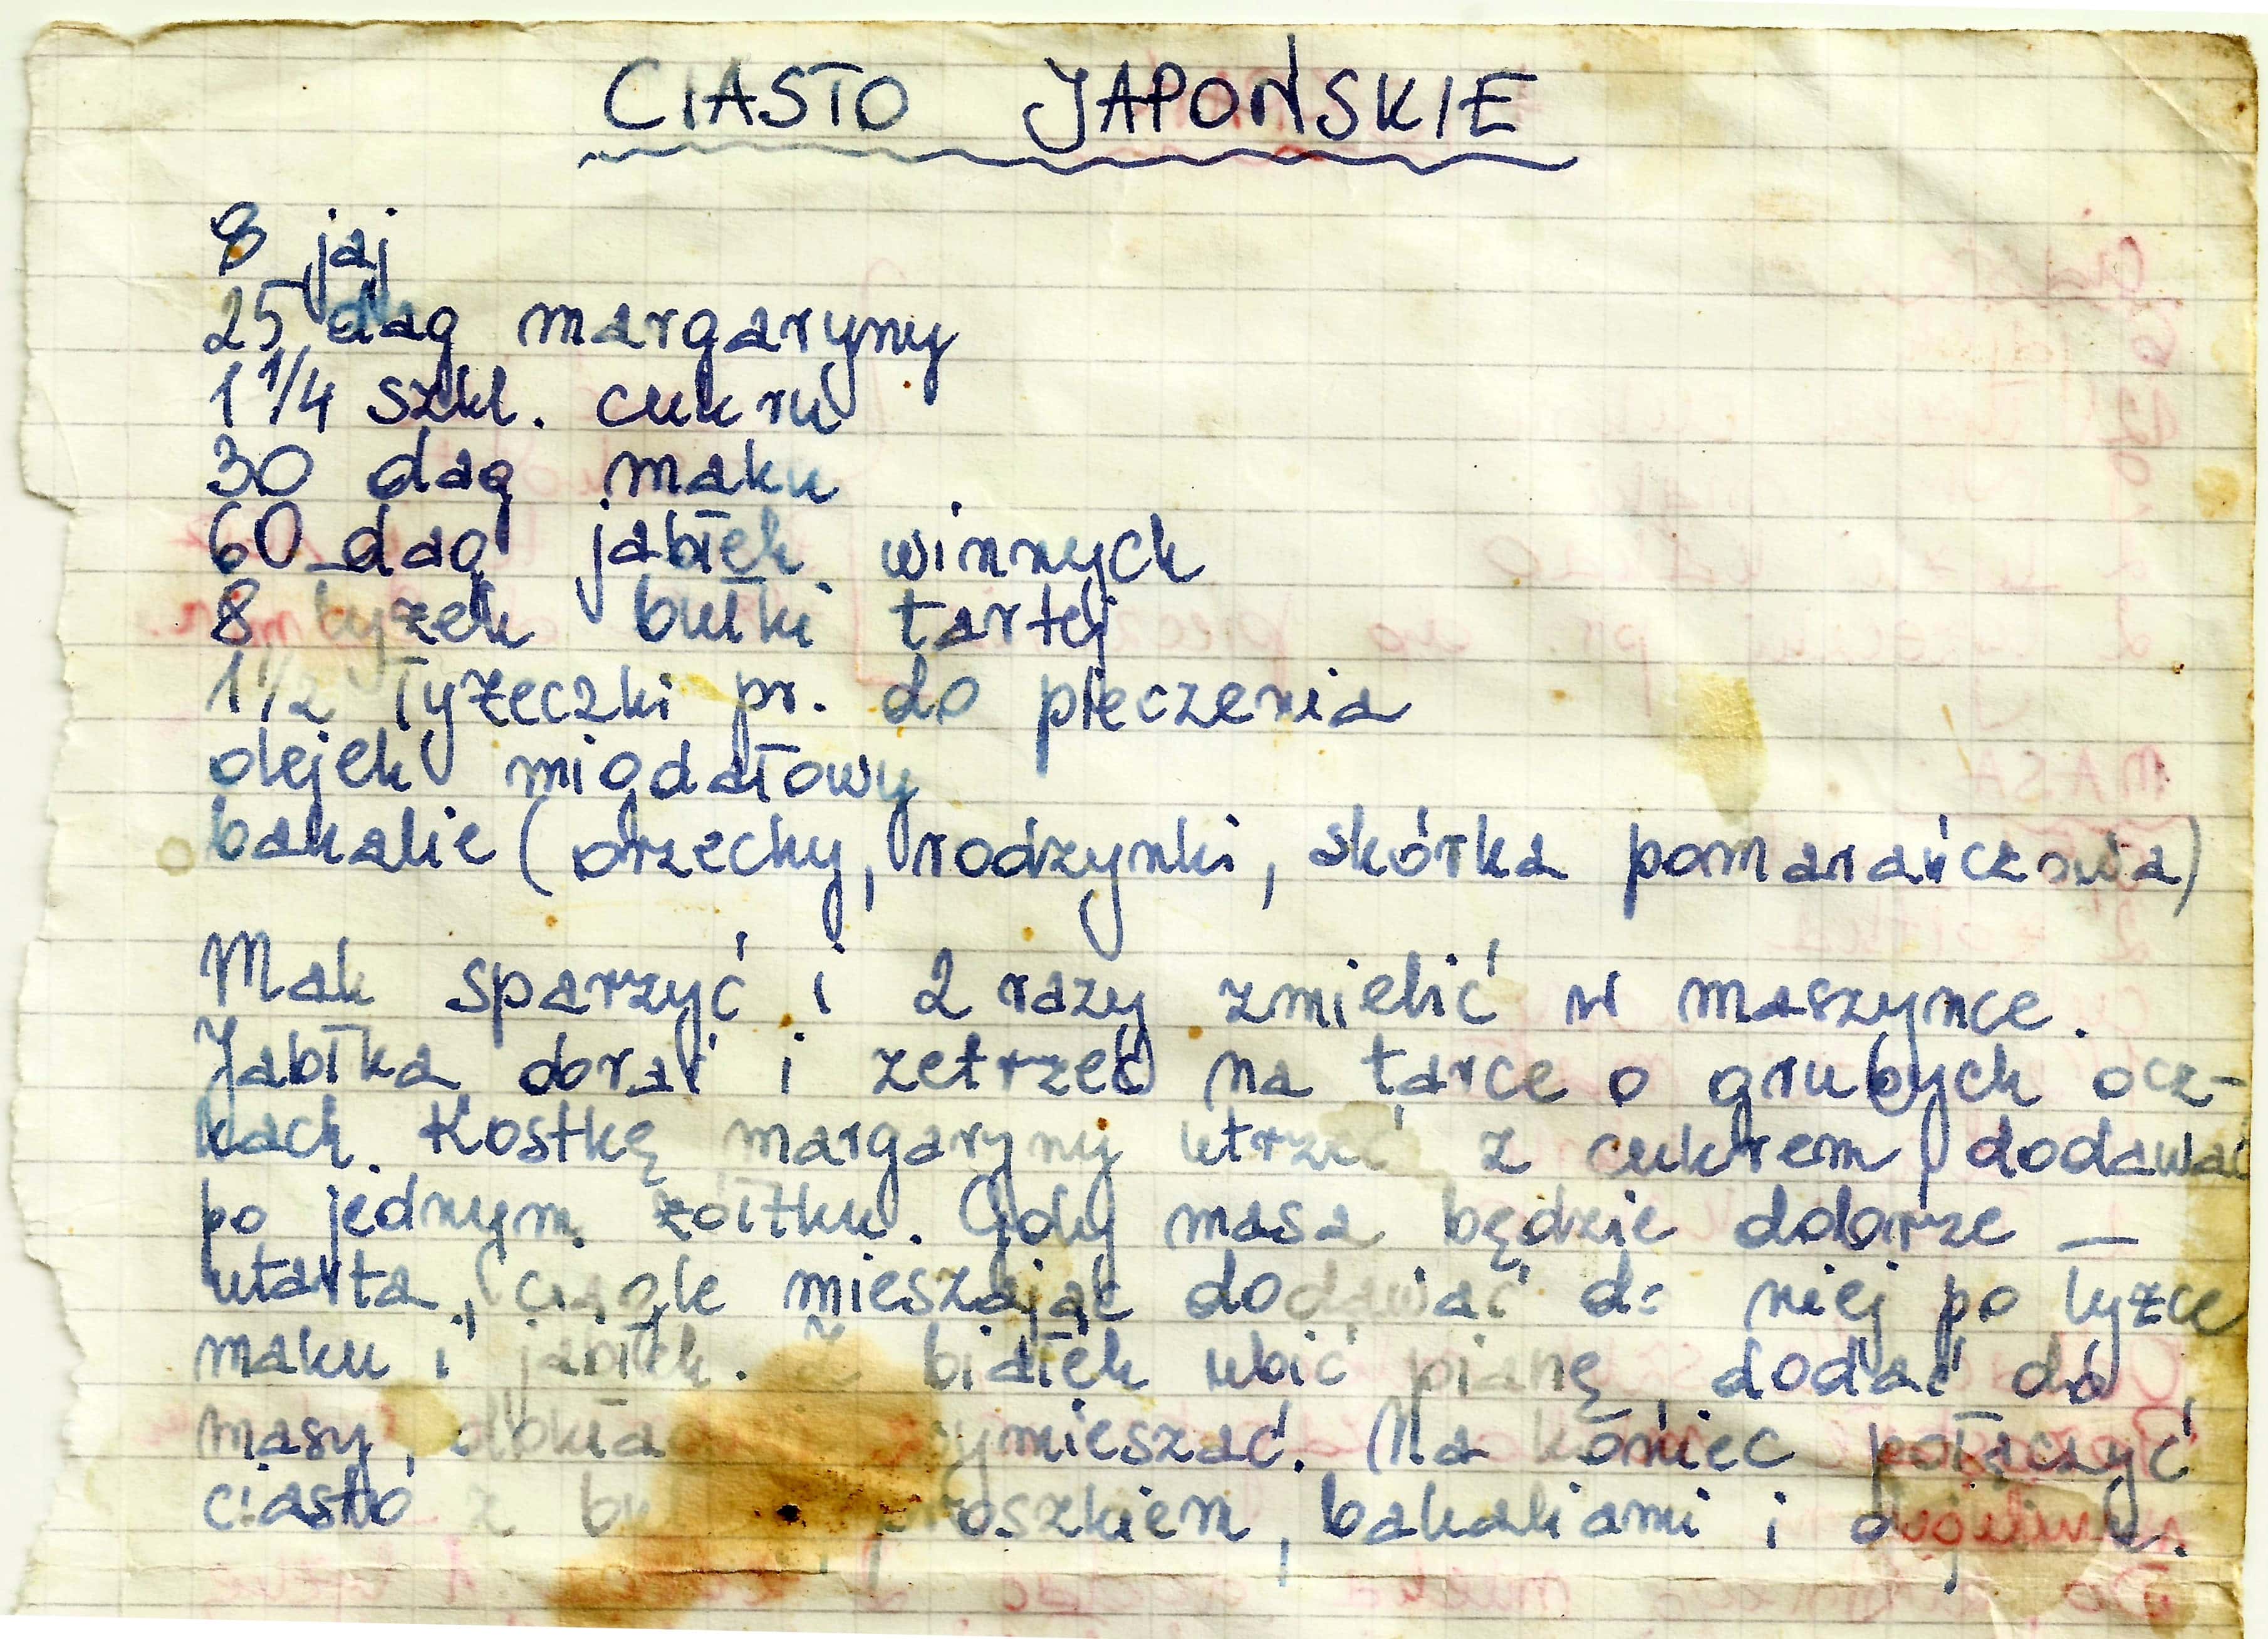 CIASTO JAPOŃSKIE
8 jaj
25 dag margaryny
1 1/4 szkl. cukru
30 dag maku
60 dag jabłek winnych
8 łyżek bułki tartej
1 1/2 łyżeczki pr. do pieczenia
olejek migdałowy
bakalie (orzechy, rodzynki, skórka pomarańczowa)
Mak sparzyć i 2 razy zmielić w maszynce.
Jabłka obrać i zetrzeć na tarce o grubych ocz-
kach. Kostkę margaryny utrzeć z cukrem dodawać
po jednym żółtku. Gdy masa będzie dobrze —
utarta, ciągle mieszając dodawać do niej po łyżce
maku i jabłek. Z białek ubić pianę, dodać do
masy, wymieszać. Na koniec połączyć
ciasto z proszkiem, bakaliami i